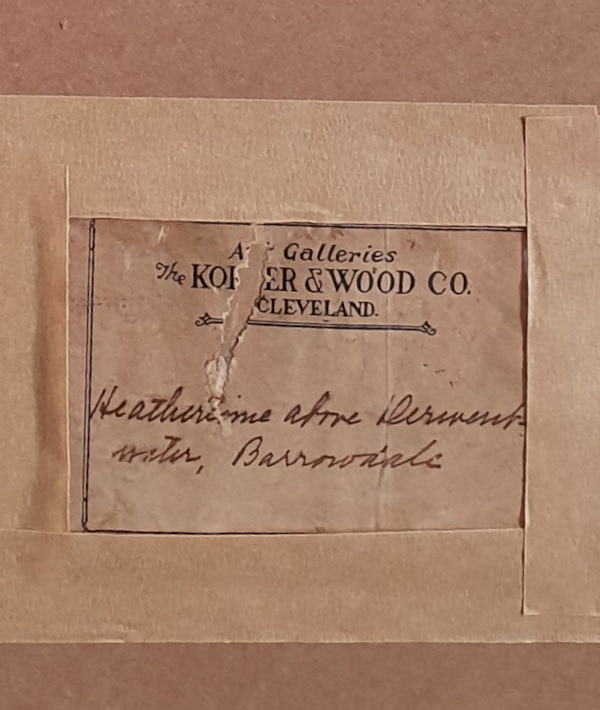 Galleries
The & WOOD CO.
CLEVELAND.
Heathertime above Derwent-
water, Barrowdale